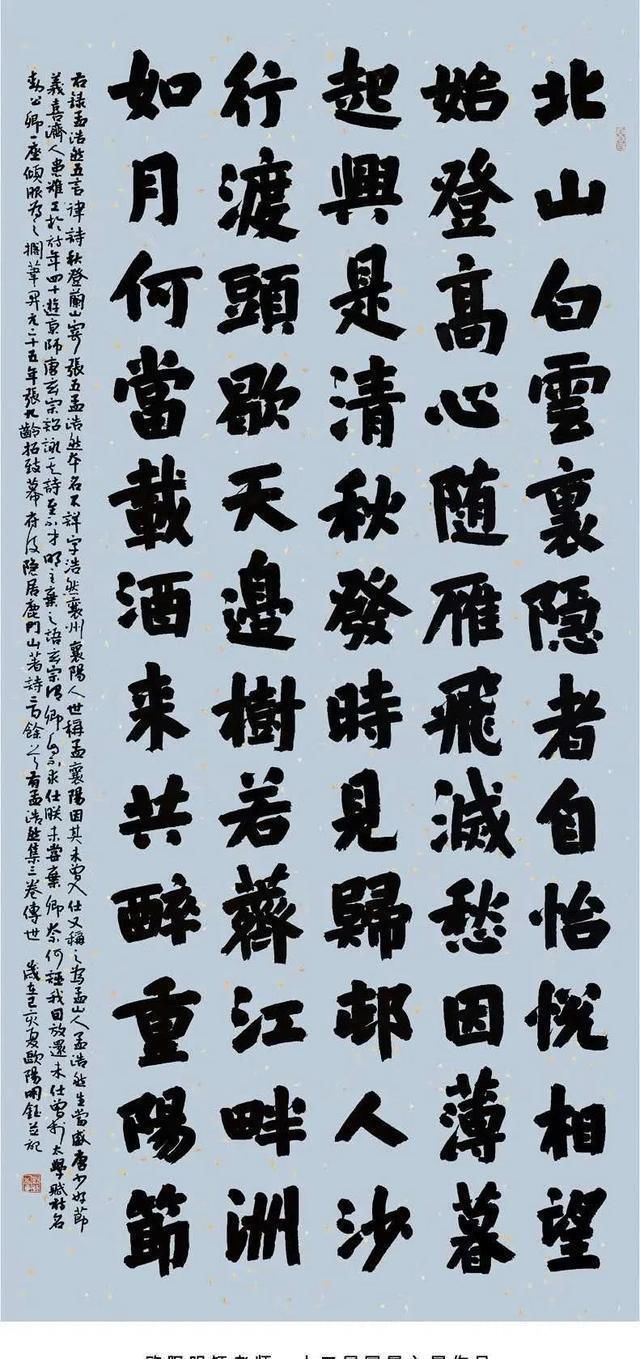 北山白雲裏隐者自怡悦相望
始登高心随雁飛滅愁因薄暮
起興是清秋發時見歸邨人沙
行渡頭歇天邊樹若薺江畔洲
如月何當載酒来共醉重陽節
右録孟浩然五言律詩秋登蘭山寄張五孟浩然本名不詳字浩然襄州襄陽人世稱孟襄陽因其未曾入仕又稱之為孟山人孟浩然生當盛唐少好節
義喜濟人患難工於詩年四十遊京師唐玄宗詔詠其詩至不才明主棄之語玄宗謂卿自不求仕朕未嘗棄卿奈何誣我因放還未仕曾於太學賦詩名
動公卿一座傾服為之擱筆開元二十五年張九齡招致幕府後隐居鹿門山著詩二百餘首有孟浩然集三卷傳世 歲在己亥夏歐陽明鈺並記